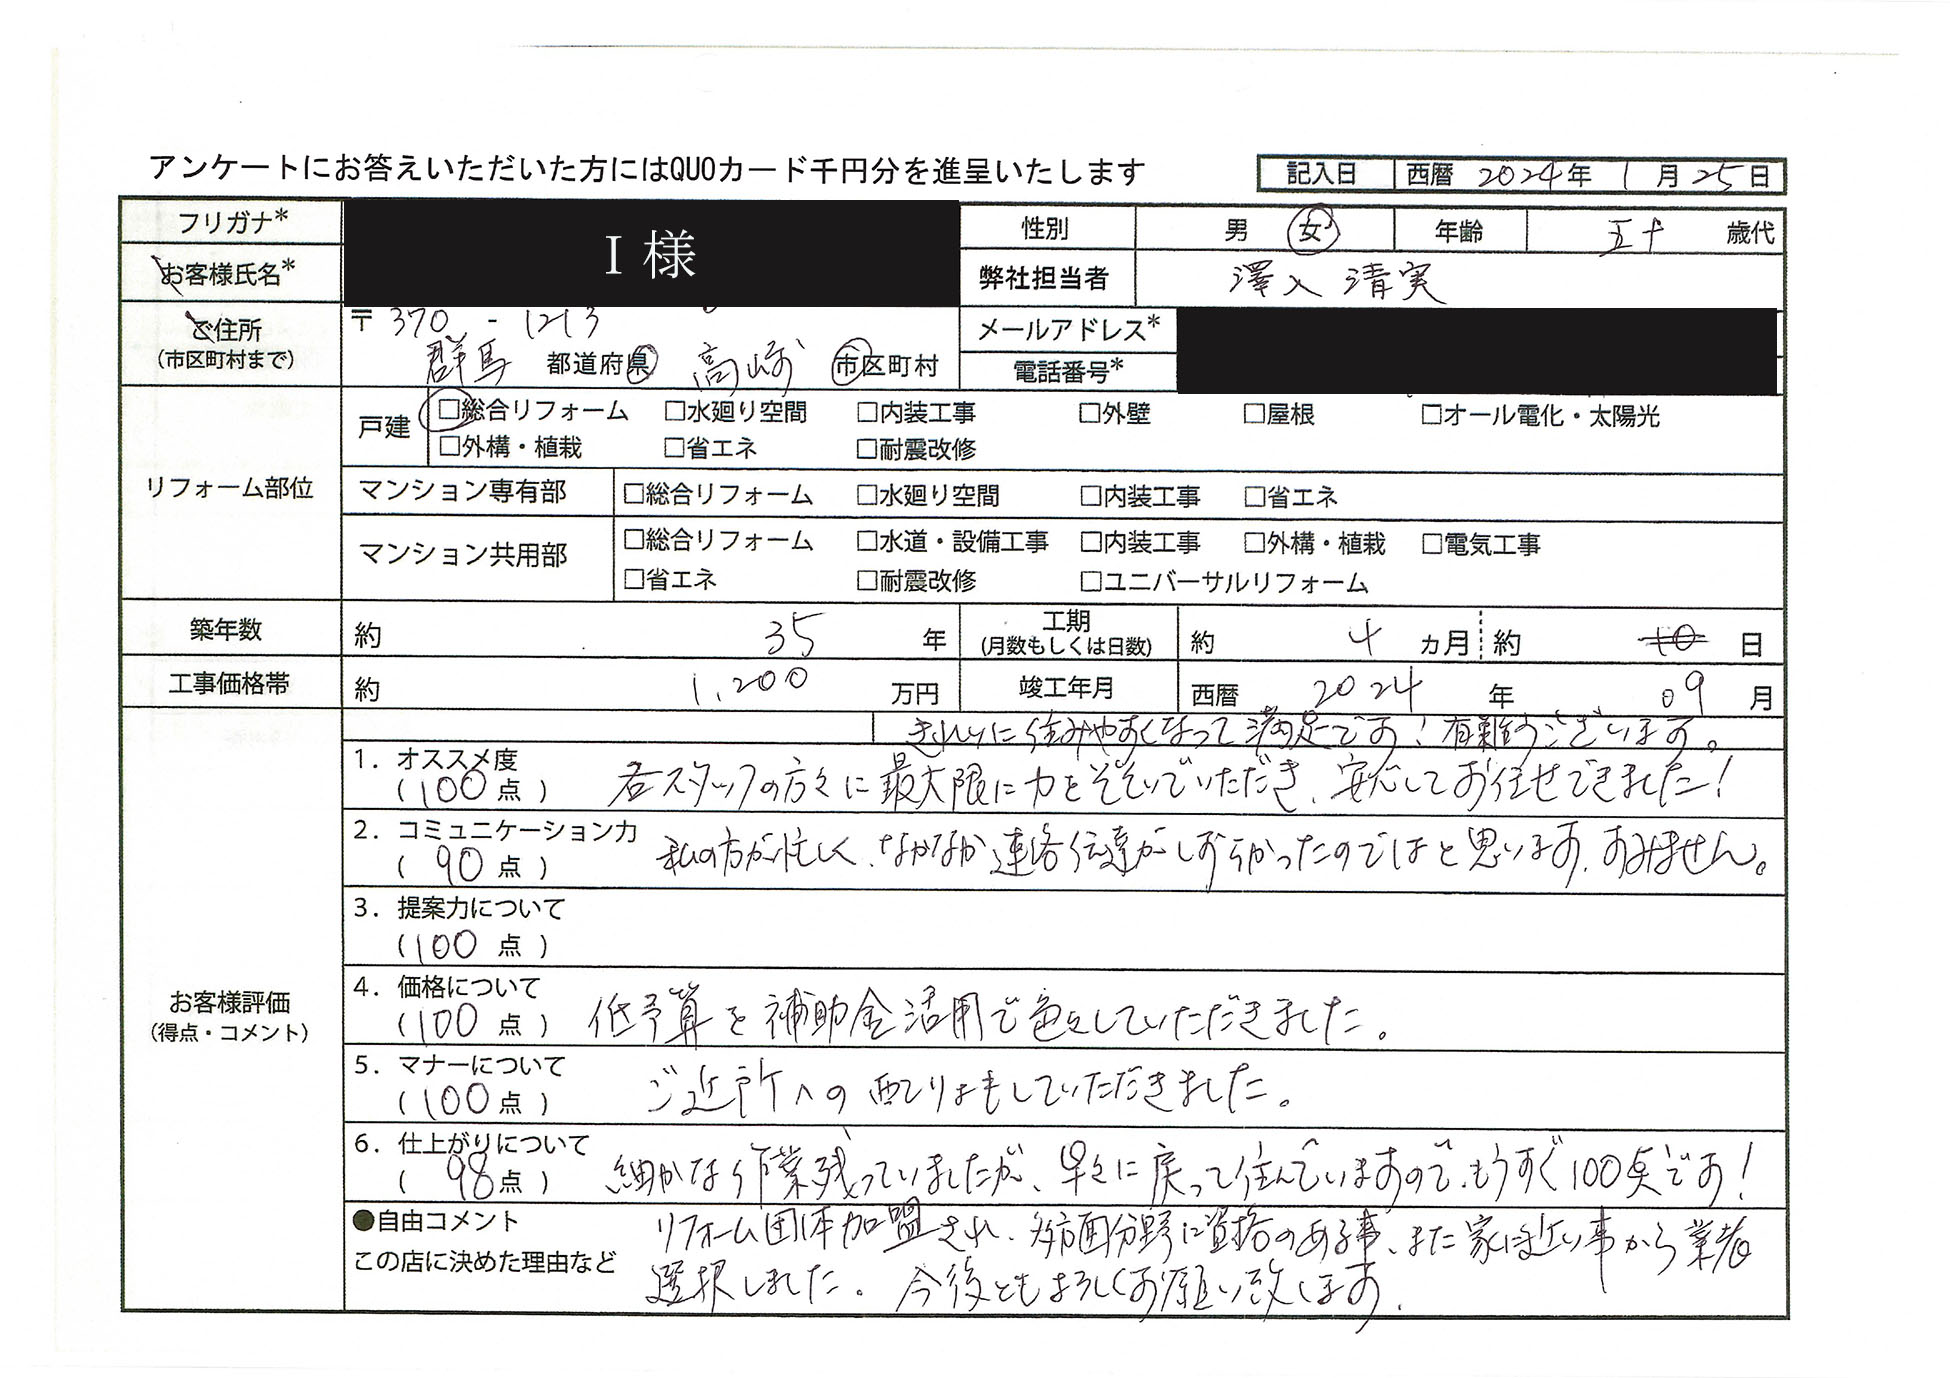 アンケートにお答えいただいた方にはQUOカード千円分を進呈いたします
記入日 西暦 2024年 1月25日
フリガナ*
I 様
性別 男 女 年齢 五十 歳代
お客様氏名*
弊社担当者 澤入 清実
ご住所
(市区町村まで)
〒370-1213
群馬 都道府県 高崎 市区町村
メールアドレス*
電話番号*
リフォーム部位
戸建
□総合リフォーム □水廻り空間 □内装工事 □外壁 □屋根 □オール電化・太陽光
□外構・植栽 □省エネ □耐震改修
マンション専有部 □総合リフォーム □水廻り空間 □内装工事 □省エネ
マンション共用部
□総合リフォーム □水道・設備工事 □内装工事 □外構・植栽 □電気工事
□省エネ □耐震改修 □ユニバーサルリフォーム
築年数 約 35 年
工期
(月数もしくは日数)
約 4 ヵ月 約 10 日
工事価格帯 約 1,200 万円 竣工年月 西暦 2024 年 09 月
お客様評価
(得点・コメント)
きれいに住みやすくなって満足です!有難うございます。
1. オススメ度
(100点)
各スタッフの方々に最大限に力をそそいでいただき、安心してお任せできました!
2. コミュニケーション力
(90点)
私の方が忙しく、なかなか連絡伝達がしずらかったのではと思います、すみません。
3. 提案力について
(100点)
4. 価格について
(100点)
低予算を補助金活用で色々していただきました。
5. マナーについて
(100点)
ご近所への配りょもしていただきました。
6. 仕上がりについて
(98点)
細かな作業残っていましたが、早々に戻って住んでいますので、もうすぐ100点です!
●自由コメント
この店に決めた理由など
リフォーム団体加盟され、多方面分野に資格のある事、また家に近い事から業者
選択しました。今後ともよろしくお願い致します。